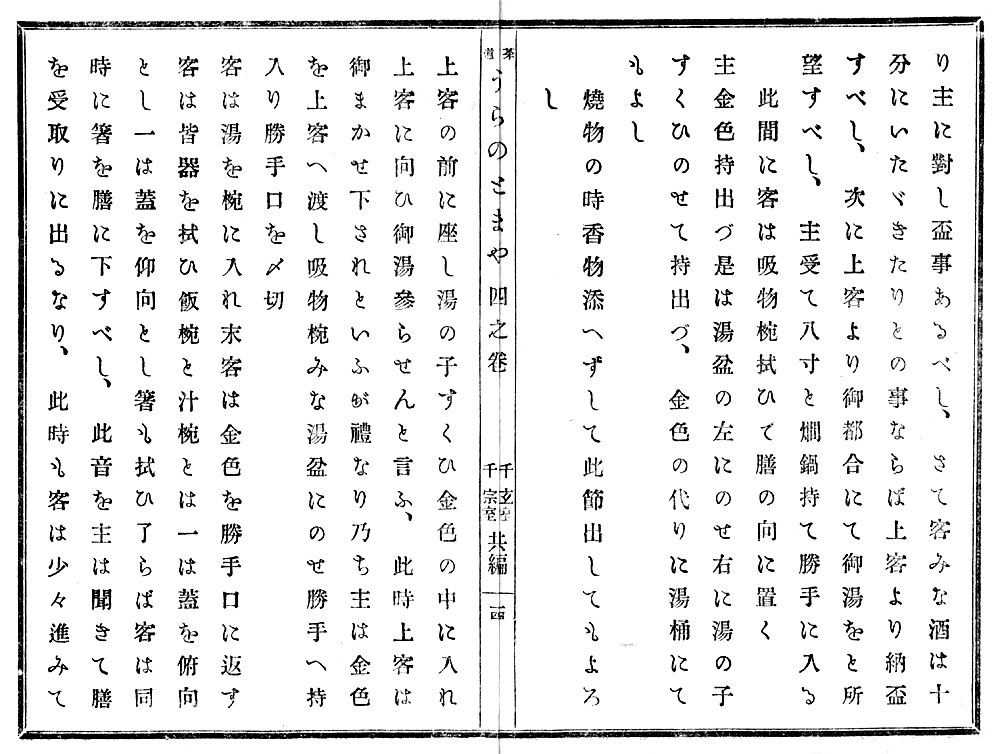 り主に對し盃事あるべし、さて客みな酒は十
分にいたゞきたりとの事ならば上客より納盃
すべし、次に上客より御都合にて御湯をと所
望すべし、主受て八寸と燗鍋持て勝手に入る
此間に客は吸物椀拭ひて膳の向に置く
主金色持出づ是は湯盆の左にのせ右に湯の子
すくひのせて持出づ、金色の代りに湯桶にて
もよし
燒物の時香物添へずして此節出してもよろ
し
茶道うらのとまや 四之卷 千玄室 千宗室 共編 一四
上客の前に座し湯の子すくひ金色の中に入れ
上客に向ひ御湯參らせんと言ふ、此時上客は
御まかせ下されといふが禮なり乃ち主は金色
を上客へ渡し吸物椀みな湯盆にのせ勝手へ持
入り勝手口を〆切
客は湯を椀に入れ末客は金色を勝手口に返す
客は皆器を拭ひ飯椀と汁椀とは一は蓋を俯向
とし一は蓋を仰向とし箸も拭ひ了らば客は同
時に箸を膳に下すべし、此音を主は聞きて膳
を受取りに出るなり、此時も客は少々進みて